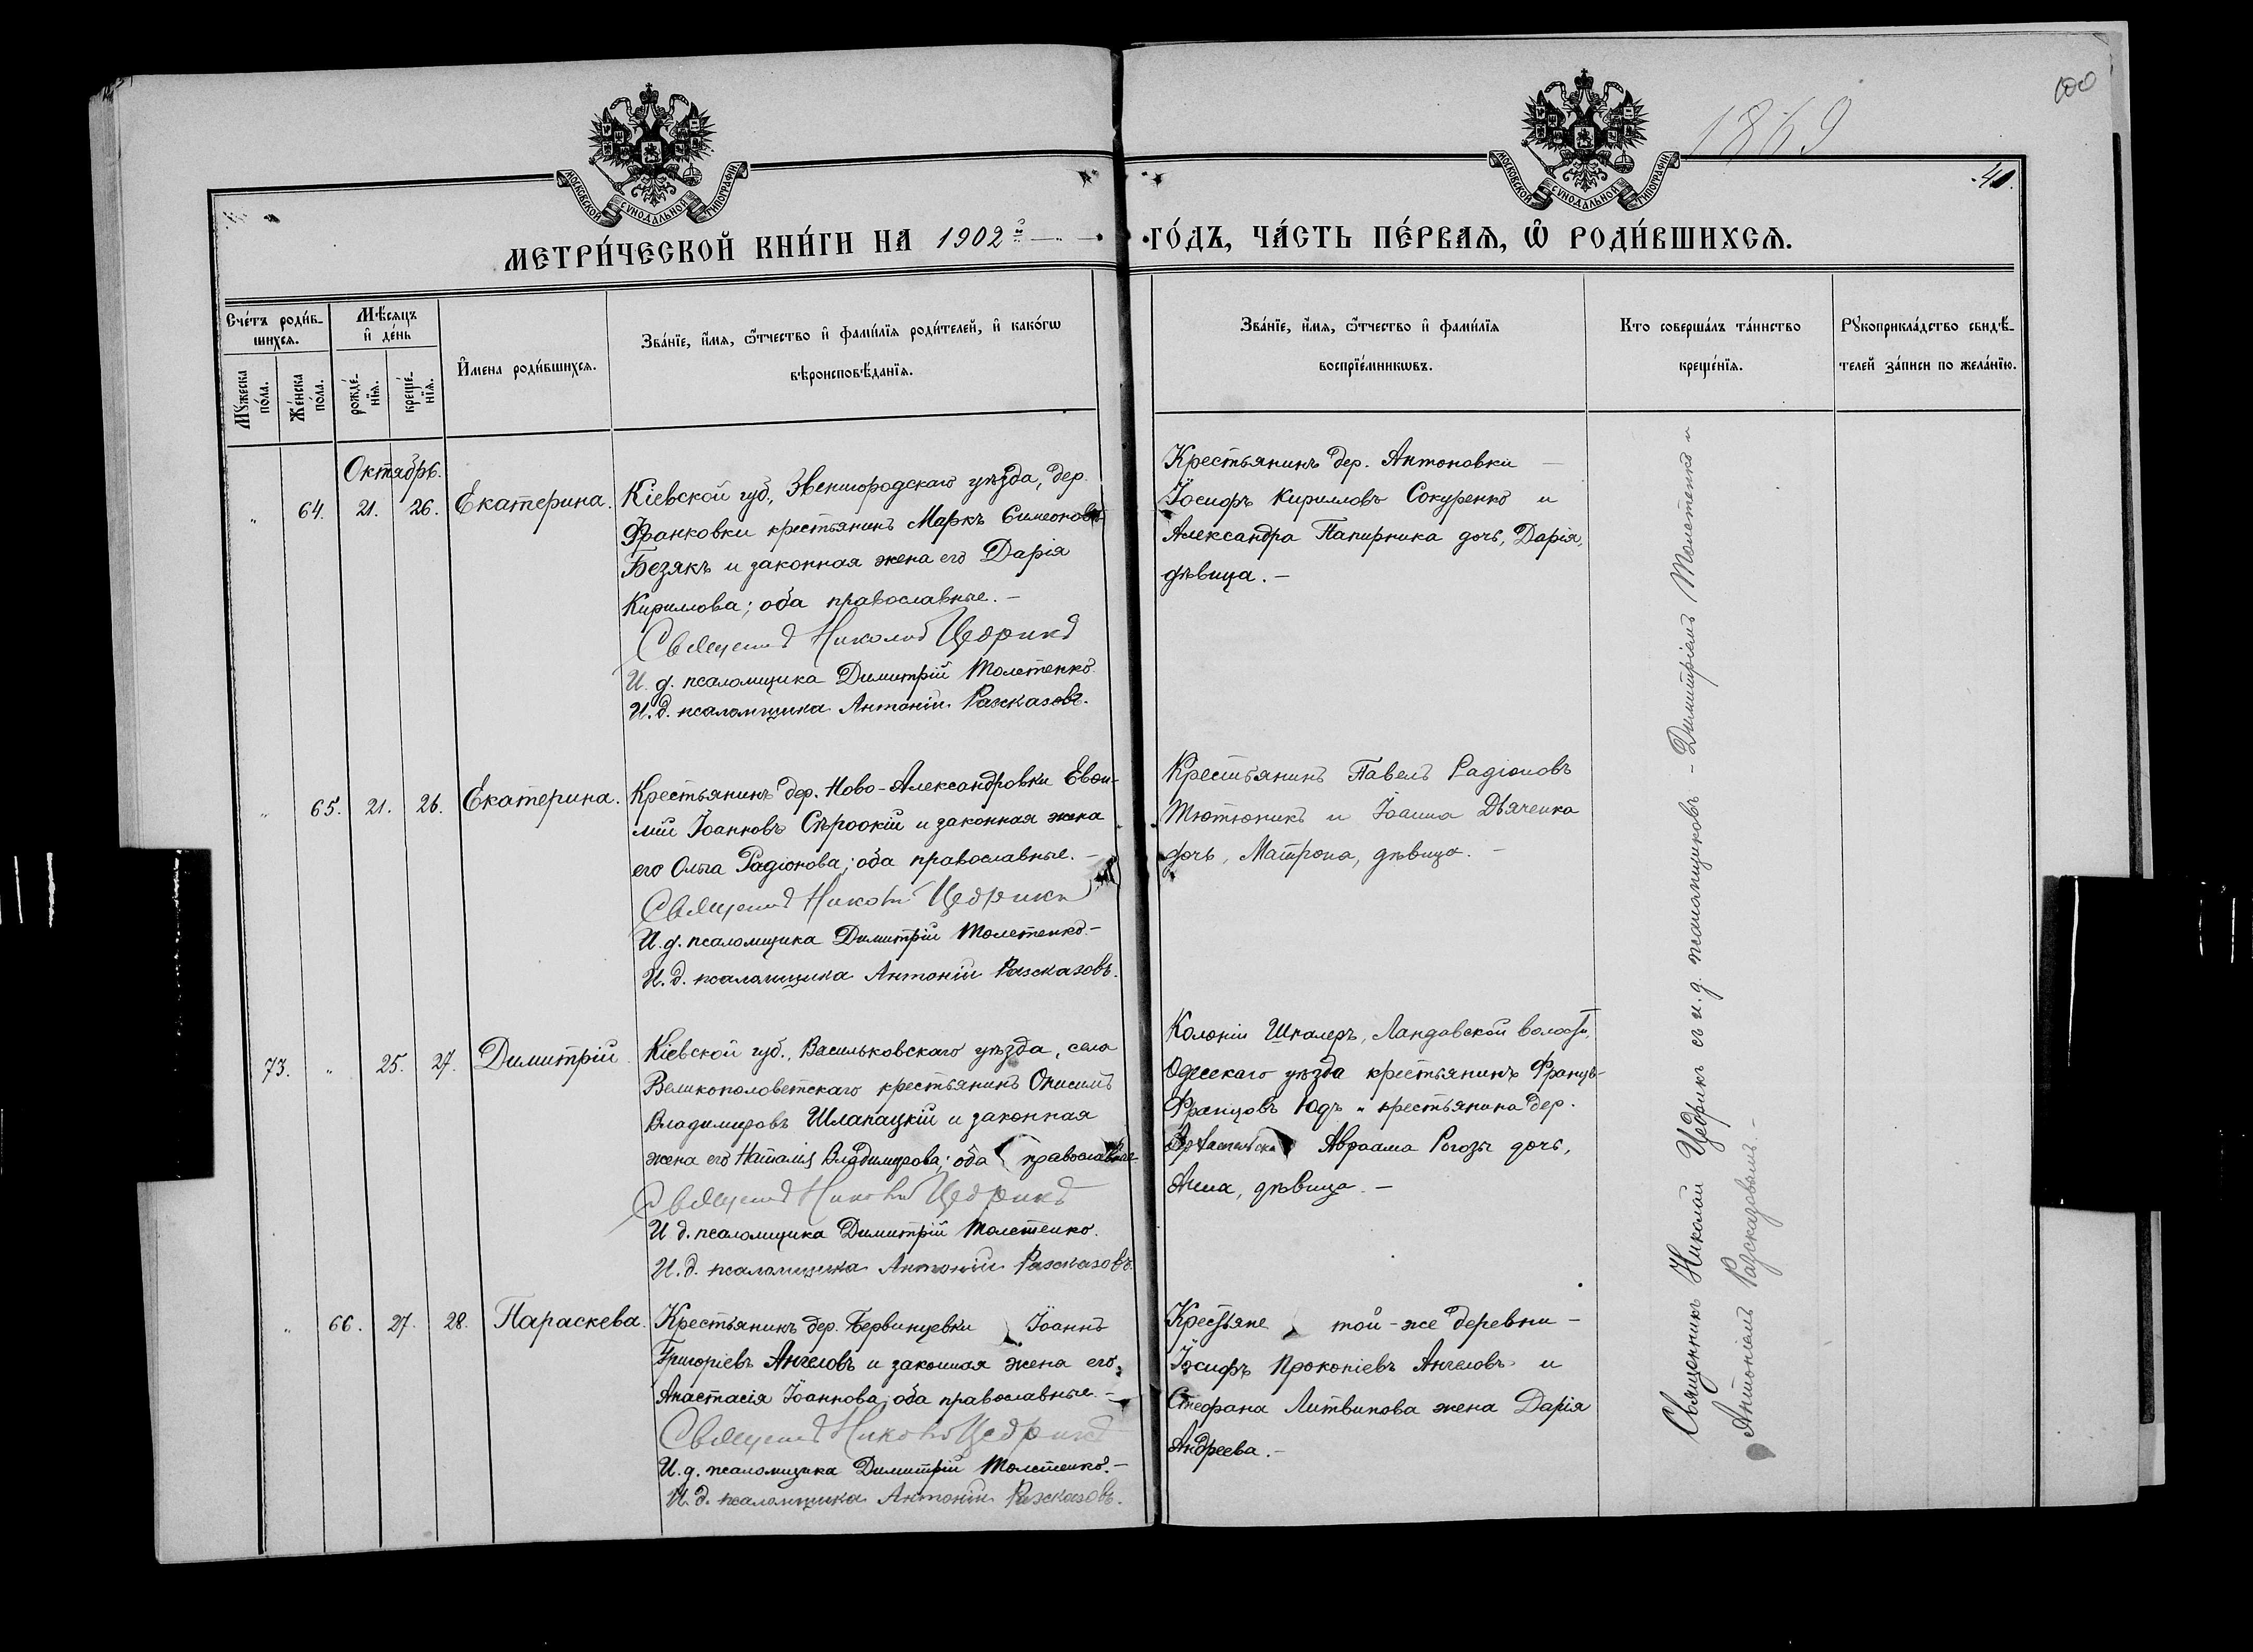 100
1869
МОСКОВСКОЙ СѴНОДАЛЬНОЙ ТИПОГРАФІИ.
МОСКОВСКОЙ СѴНОДАЛЬНОЙ ТИПОГРАФІИ.
40.
МЕТРИ́ЧЕСКОЙ КНИ́ГИ НА 1902й
ГО́ДЪ, ЧА́СТЬ ПЕ́РВАѦ, Ѡ҆ РОДИ́ВШИХСѦ.
Сче́тъ роди́в-
шихсѧ.
Мѣ́сѧцъ
и҆ де́нь
Мꙋ́жеска
по́ла.
Же́нска
по́ла.
рожде́-
нїѧ.
креще́-
нїѧ.
И҆мена роди́вшихсѧ.
Зва́нїе, и҆́мѧ, ѻ҆́тчество и҆ фами́лїѧ роди́телей, и҆ како́гѡ
вѣроисповѣ́данїѧ.
Зва́нїе, и҆́мѧ, ѻ҆́тчество и҆ фами́лїѧ
воспрїе́мникѡвъ.
Кто соверша́лъ та́инство
креще́нїѧ.
Рꙋкоприкла́дство свидѣ́-
телей за́писи по жела́нїю.
Октябрь.
" 64. 21. 26. Екатерина.
Кіевской губ., Звенигородскаго уѣзда, дер.
Франковки крестьянинъ Маркъ Симеоновъ
Безякъ и законная жена его Дарія
Кириллова; оба православные. –
Священникъ Николай Цедрикъ
И. д. псаломщика Димитрій Молетенко
И. д. псаломщика Антоній Разсказовъ.
Крестьянинъ дер. Антоновки –
Іосифъ Кирилловъ Сокуренко и
Александра Папирника дочь, Дарія,
дѣвица. –
" 65. 21. 26. Екатерина.
Крестьянинъ дер. Ново-Александровки Евѳи-
мій Іоанновъ и законная жена
его Ольга Радіонова; оба православные. –
Священникъ Николай Цедрикъ
И. д. псаломщика Димитрій Молетенко. –
И. д. псаломщика Антоній Разсказовъ.
Крестьянинъ Павелъ Радіоновъ
Тютюникъ и Іоанна Дьяченка
дочь, Матрона, дѣвица. –
73. " 25. 27. Димитрій.
Кіевской губ., Васильковскаго уѣзда, села
Великополоветскаго крестьянинъ Онисимъ
Владимировъ Шлапацкій и законная
жена его Наталія Владимирова; оба православные.
Священникъ Николай Цедрикъ
И. д. псаломщика Димитрій Молетенко.
И. д. псаломщика Антоній Разсказовъ.
Колоніи Шпалеръ, Ландавской волости,
Одесскаго уѣзда крестьянинъ Францъ
Францовъ Юдъ и крестьянина дер.
Авраама Рогозы дочь,
Анна, дѣвица. –
" 66. 27. 28. Параскева.
Крестьянинъ дер. Бервинцевки Іоаннъ
Григоріевъ Ангеловъ и законная жена его
Анастасія Іоаннова; оба православные. –
Священникъ Николай Цедрикъ
И. д. псаломщика Димитрій Молетенко. –
И. д. псаломщика Антоній Разсказовъ.
Крестьяне той-же деревни –
Іосифъ Прокопіевъ Ангеловъ и
Стефана Литвинова жена Дарія
Андреева. –
Священникъ Николай Цедрикъ съ и. д. псаломщиковъ – Димитріемъ Молетенко и
Антоніемъ Разсказовымъ. –